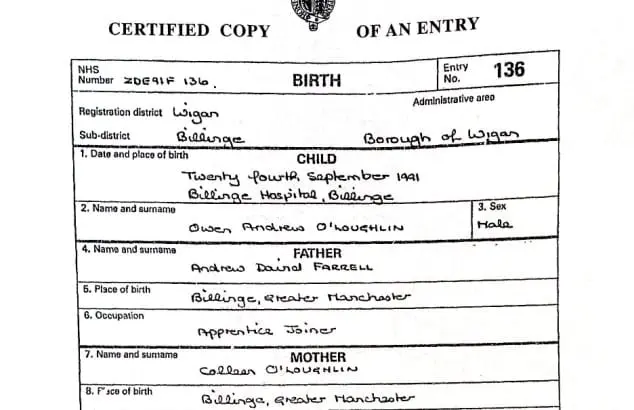 CERTIFIED COPY OF AN ENTRY
NHS Number ZDE91F 136.
BIRTH
Entry No. 136
Administrative area
Registration district Wigan
Sub-district Billinge Borough of Wigan
1. Date and place of birth CHILD
Twenty fourth September 1991
Billinge Hospital, Billinge
2. Name and surname 3. Sex
Owen Andrew O'LOUGHLIN Male
4. Name and surname FATHER
Andrew David FARRELL
5. Place of birth
Billinge, Greater Manchester
6. Occupation
Apprentice Joiner
7. Name and surname MOTHER
Colleen O'LOUGHLIN
8. Place of birth
Billinge, Greater Manchester